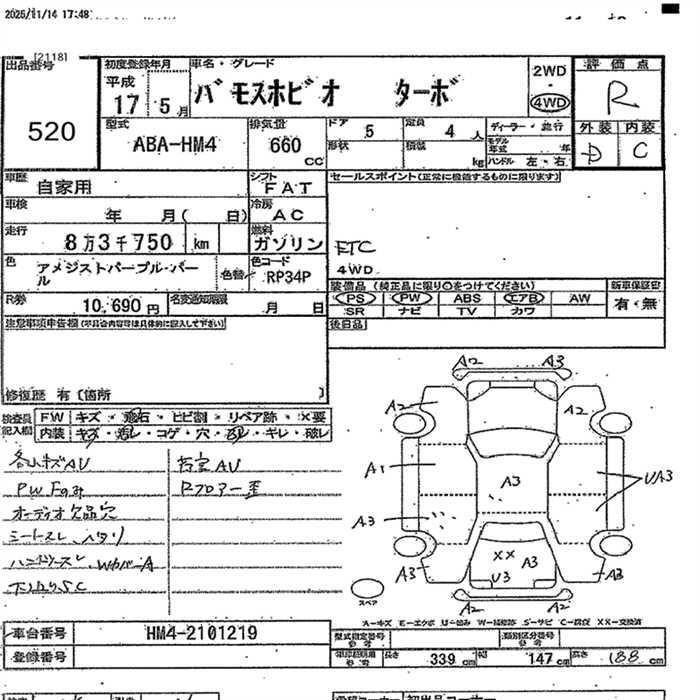 2025/11/14 17:48
[2118]
出品番号
520
初度登録年月
平成
17 5 月
車名・グレード
バモスホビオ ターボ
2WD
・
4WD
評価点
R
外装 内装
D C
型式
ABA-HM4
排気量
660
cc
ドア
5
定員
4 人
形状
積載
kg
ディーラー・並行
モデル年式 年
ハンドル 左・右
車歴
自家用
シフト
FAT
車検
年 月( 日)
冷房
AC
走行
8万3千750 km
燃料
ガソリン
色
アメジストパープル・パール
色替
色コード
RP34P
R券
10,690 円
名変通知期限
月 日
セールスポイント(正常に機能するものに限ります)
ETC
4WD
装備品 (純正品に限り○をつけてください)
PS PW ABS エアB AW
SR ナビ TV カワ
新車保証書
有・無
後日品
注意事項申告欄(不具合内容等は具体的に記入して下さい)
修復歴 有〔箇所 〕
検査員記入欄
FW キズ・飛石・ヒビ割・リペア跡・×要
内装 キズ・汚レ・コゲ・穴・凹レ・キレ・破レ
各小キズAU
PW Fのみ
オーディオ欠品穴
Rフロアー歪
A2 A3
A2 A2
A1 A3 UA3
A3
A3 XX A3 A3
U3
A2 A2
スペア
A=キズ E=エクボ U=凹み W=補修跡 S=サビ C=腐食 XX=交換済
車台番号 HM4-2101219
登録番号
型式指定番号
参考
類別区分番号
参考
長さ 339 cm 幅 147 cm 高さ 188 cm